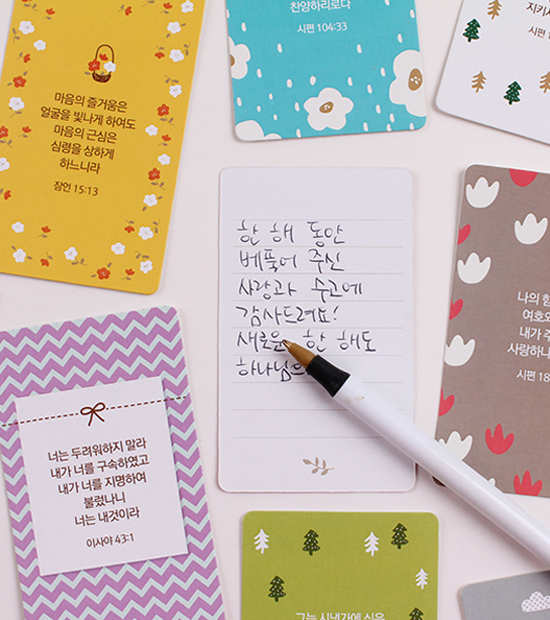 마음의 즐거움은
얼굴을 빛나게 하여도
마음의 근심은
심령을 상하게
하느니라
잠언 15:13
찬양하리로다
시편 104:33
지키시
시편 1
한 해 동안
베풀어 주신
사랑과 수고에
감사드려요!
새로운 한 해도
하나님의
나의 힘
여호와
내가 주
사랑하나
시편 18
너는 두려워하지 말라
내가 너를 구속하였고
내가 너를 지명하여
불렀나니
너는 내것이라
이사야 43:1
그는 시냇가에 심은